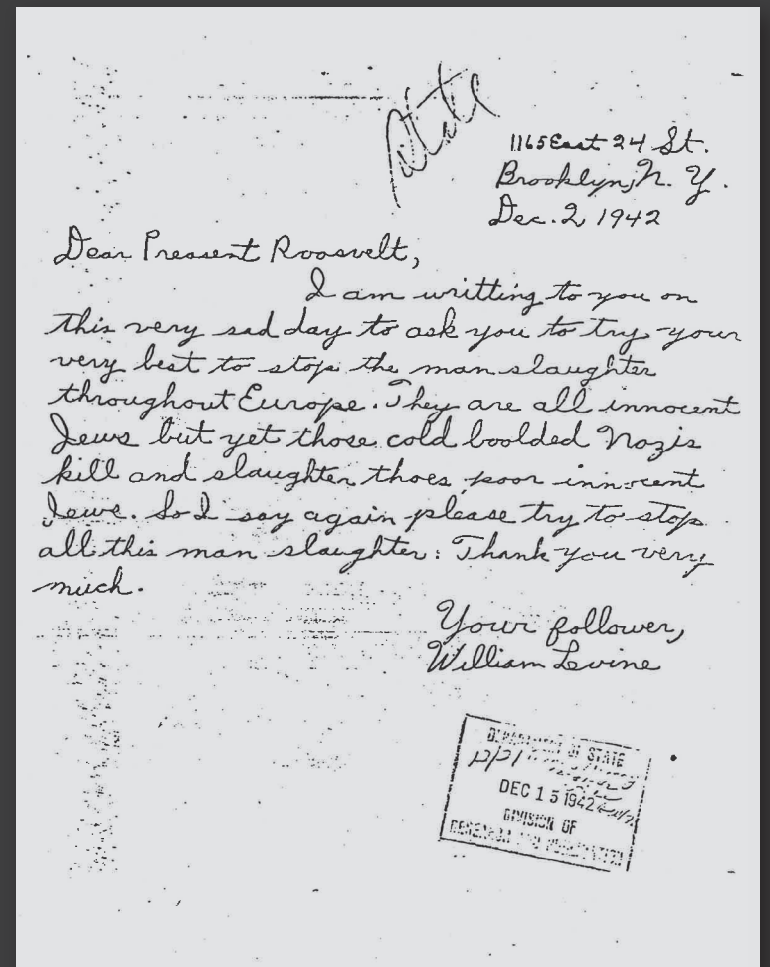 State
1165 East 24 St.
Brooklyn, N. Y.
Dec. 2, 1942
Dear Preasent Roosvelt,
I am writting to you on
this very sad day to ask you to try your
very best to stop the man slaughter
throughout Europe. They are all innocent
Jews but yet those cold boolded Nazis
kill and slaughter thoes poor innocent
Jews. So I say again please try to stop
all this man slaughter. Thank you very
much.
Your follower,
William Levine
DEPARTMENT OF STATE
12/21
DEC 15 1942
DIVISION OF
RESEARCH AND PUBLICATION